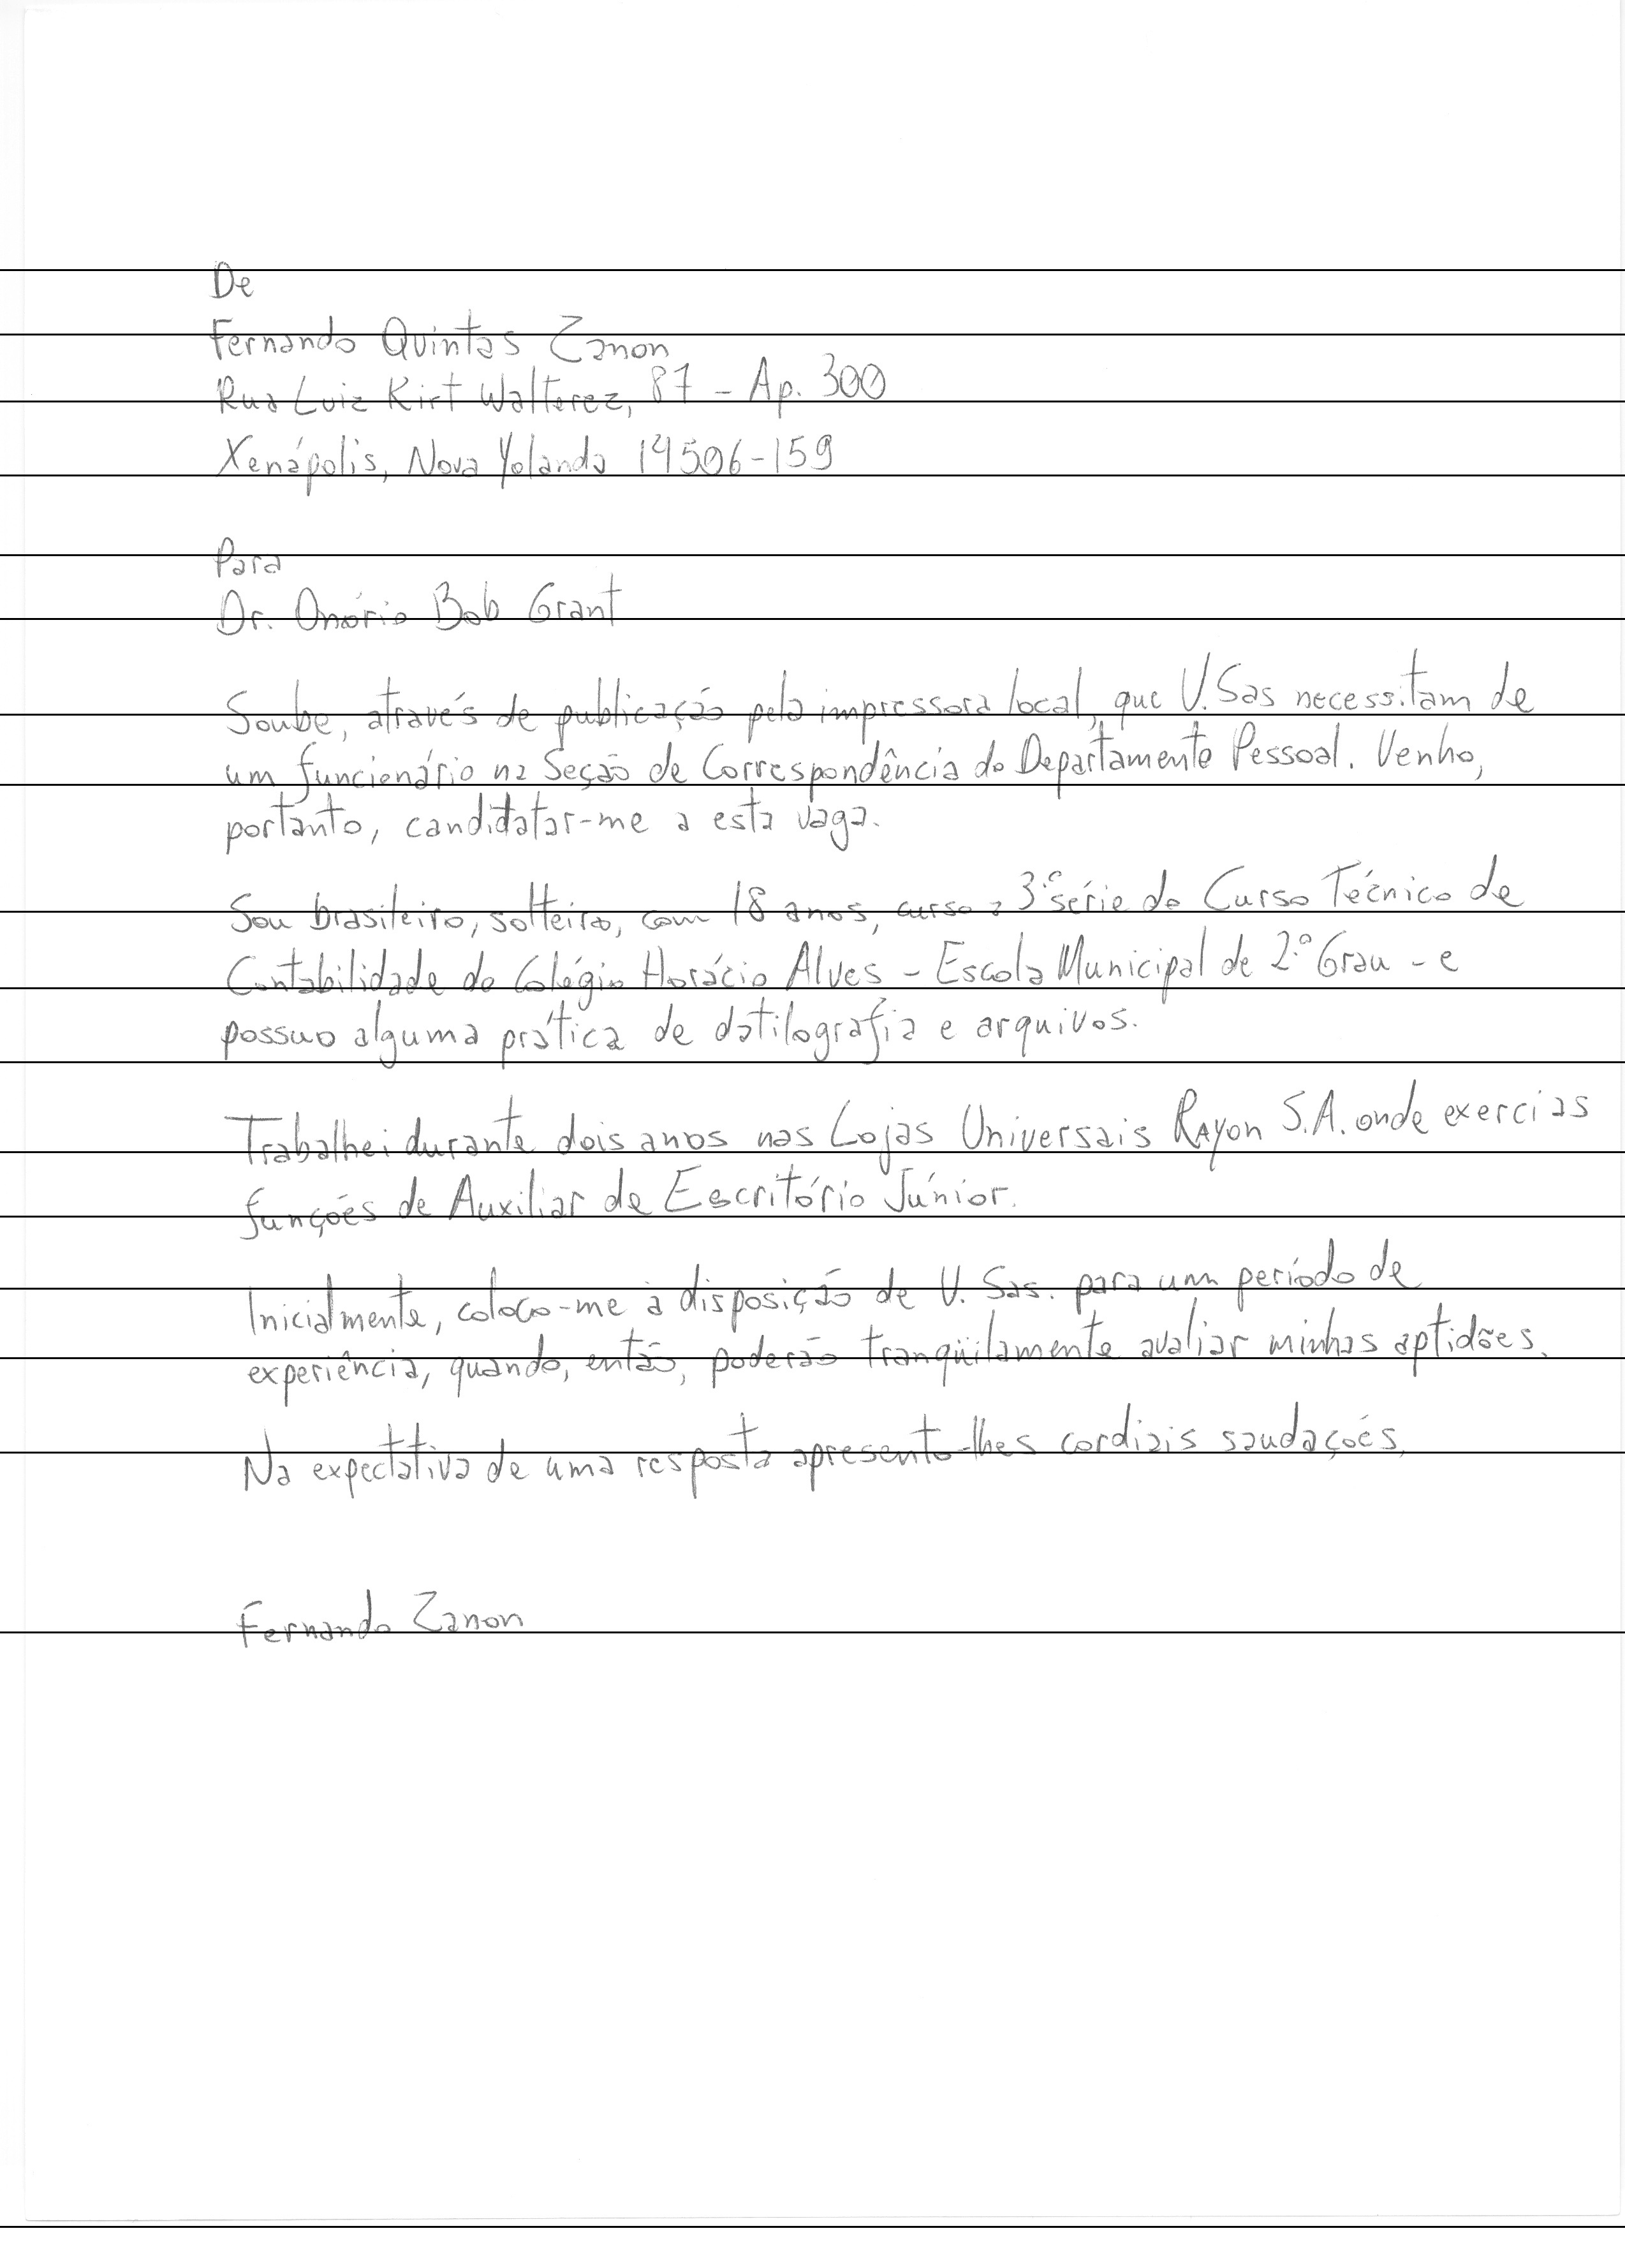 De
Fernando Quintas Zanon
Rua Luiz Kirt Walterez, 87 - Ap. 300
Xenápolis, Nova Yolanda 14506-159
Para
Dr. Onório Bob Grant
Soube, através de publicação pela impressora local, que V.Sas necessitam de
um funcionário na Seção de Correspondência do Departamento Pessoal. Venho,
portanto, candidatar-me a esta vaga.
Sou brasileiro, solteiro, com 18 anos, curso a 3.ª série do Curso Técnico de
Contabilidade do Colégio Horácio Alves - Escola Municipal de 2.º Grau - e
possuo alguma prática de datilografia e arquivos.
Trabalhei durante dois anos nas Lojas Universais Rayon S.A. onde exerci as
funções de Auxiliar de Escritório Júnior.
Inicialmente, coloco-me à disposição de V. Sas. para um período de
experiência, quando, então, poderão tranqüilamente avaliar minhas aptidões.
Na expectativa de uma resposta apresento-lhes cordiais saudações,
Fernando Zanon